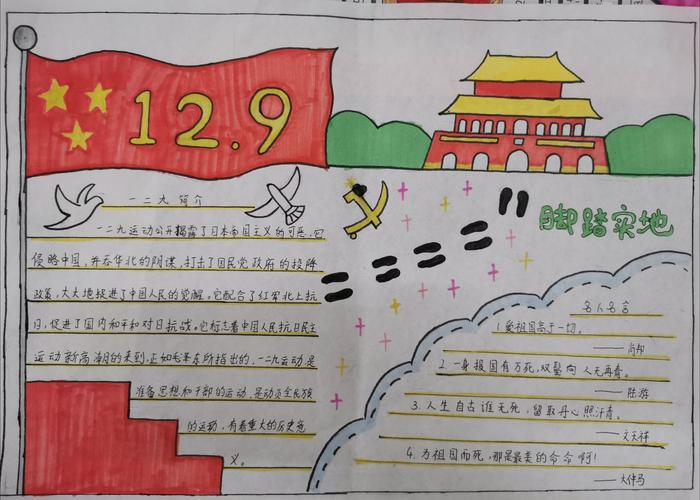 12.9
一二九 简介
一二九运动公开揭露了日本帝国主义的可恶,它
侵略中国,并吞华北的阴谋,打击了国民党政府的投降
政策,大大地促进了中国人民的觉醒。它配合了红军北上抗
日,促进了国内和平和对日抗战。它标志着中国人民抗日民主
运动新高潮的来到。正如毛泽东所指出的,一二九运动是
准备思想和干部的运动,是动员全民族
的运动,有着重大的历史意
义。
脚踏实地
名人名言
1.爱祖国高于一切。
——肖邦
2.一身报国有万死,双鬓向人无再青。
——陆游
3.人生自古谁无死,留取丹心照汗青。
——文天祥
4.为祖国而死,那是最美的命命啊!
——大仲马